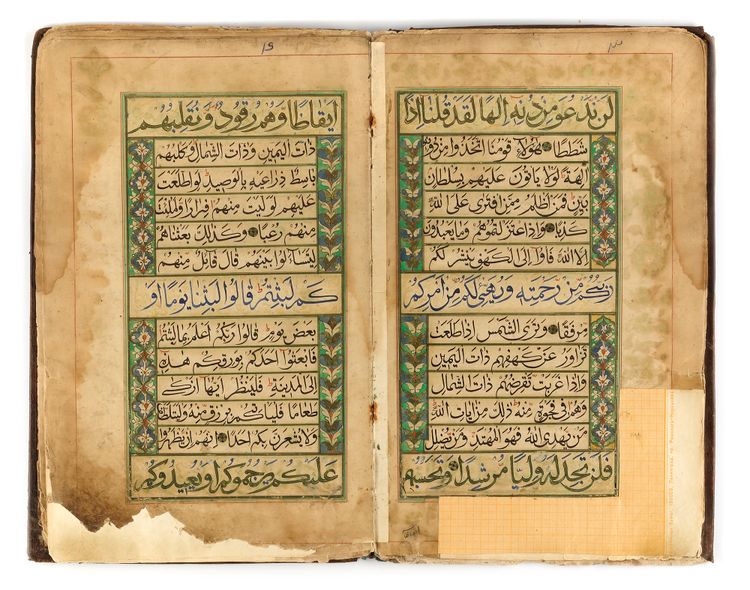 لن ندعو من دونه الها لقد قلنا اذا
شططا هؤلاء قومنا اتخذوا من دونه
الهة لولا ياتون عليهم بسلطان
بين فمن اظلم ممن افترى على الله
كذبا واذ اعتزلتموهم وما يعبدون
الا الله فاوا الى الكهف ينشر لكم
ربكم من رحمته ويهيئ لكم من امركم
مرفقا وترى الشمس اذا طلعت
تزاور عن كهفهم ذات اليمين
واذا غربت تقرضهم ذات الشمال
وهم في فجوة منه ذلك من ايات الله
من يهدي الله فهو المهتد ومن يضلل
فلن تجد له وليا مرشدا وتحسبهم
ايقاظا وهم رقود ونقلبهم
ذات اليمين وذات الشمال وكلبهم
باسط ذراعيه بالوصيد لو اطلعت
عليهم لوليت منهم فرارا ولملئت
منهم رعبا وكذلك بعثناهم
ليتساءلوا بينهم قال قائل منهم
كم لبثتم قالوا لبثنا يوما او
بعض يوم قالوا ربكم اعلم بما لبثتم
فابعثوا احدكم بورقكم هذه
الى المدينة فلينظر ايها ازكى
طعاما فلياتكم برزق منه وليتلطف
ولا يشعرن بكم احدا انهم ان يظهروا
عليكم يرجموكم او يعيدوكم